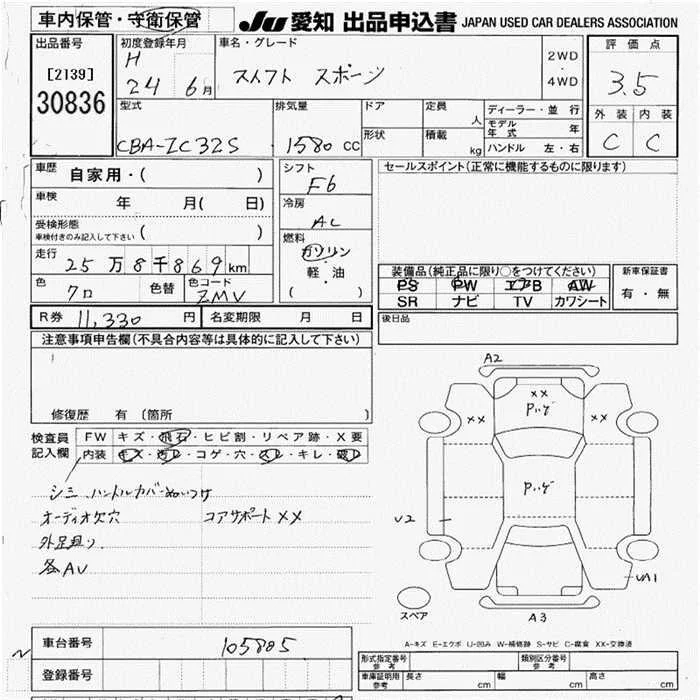 車内保管・守衛保管
JU 愛知 出品申込書 JAPAN USED CAR DEALERS ASSOCIATION
出品番号
[2139]
30836
初度登録年月
H
24 6月
車名・グレード
スイフト スポーツ
2WD
・
4WD
評価点
3.5
外装 内装
C C
型式
CBA-ZC32S
排気量
1580 CC
ドア
形状
定員
人
積載
kg
ディーラー・並行
モデル年式 年
ハンドル 左・右
車歴
自家用・( )
車検
年 月( 日)
受検形態
車検付きのみ記入して下さい ( )
走行
25万8千869km
色
クロ
色替
色コード
ZMV
シフト
F6
冷房
AC
燃料
ガソリン
・
軽・油
( )
セールスポイント(正常に機能するものに限ります)
装備品(純正品に限り○をつけてください)
PS PW エアB AW
SR ナビ TV カワシート
新車保証書
有・無
後日品
R券 11,330円
名変期限 月 日
注意事項申告欄(不具合内容等は具体的に記入して下さい)
修復歴 有〔箇所 〕
検査員
記入欄
FW キズ・飛石・ヒビ割・リペア跡・X要
内装 キズ・汚レ・コゲ・穴・スレ・キレ・破レ
シミ ハンドルカバーぬいつけ
オーディオ欠穴 コアサポートXX
外足廻り
各AU
A2
XX
XX
Pハゲ
XX
Pハゲ
U2
UA1
A3
スペア
A-キズ E-エクボ U-凹み W-補修跡 S-サビ C-腐食 XX-交換済
車台番号
105805
登録番号
形式指定番号
参考
類別区分番号
参考
車庫証明用
参考
長さ cm 幅 cm 高さ cm